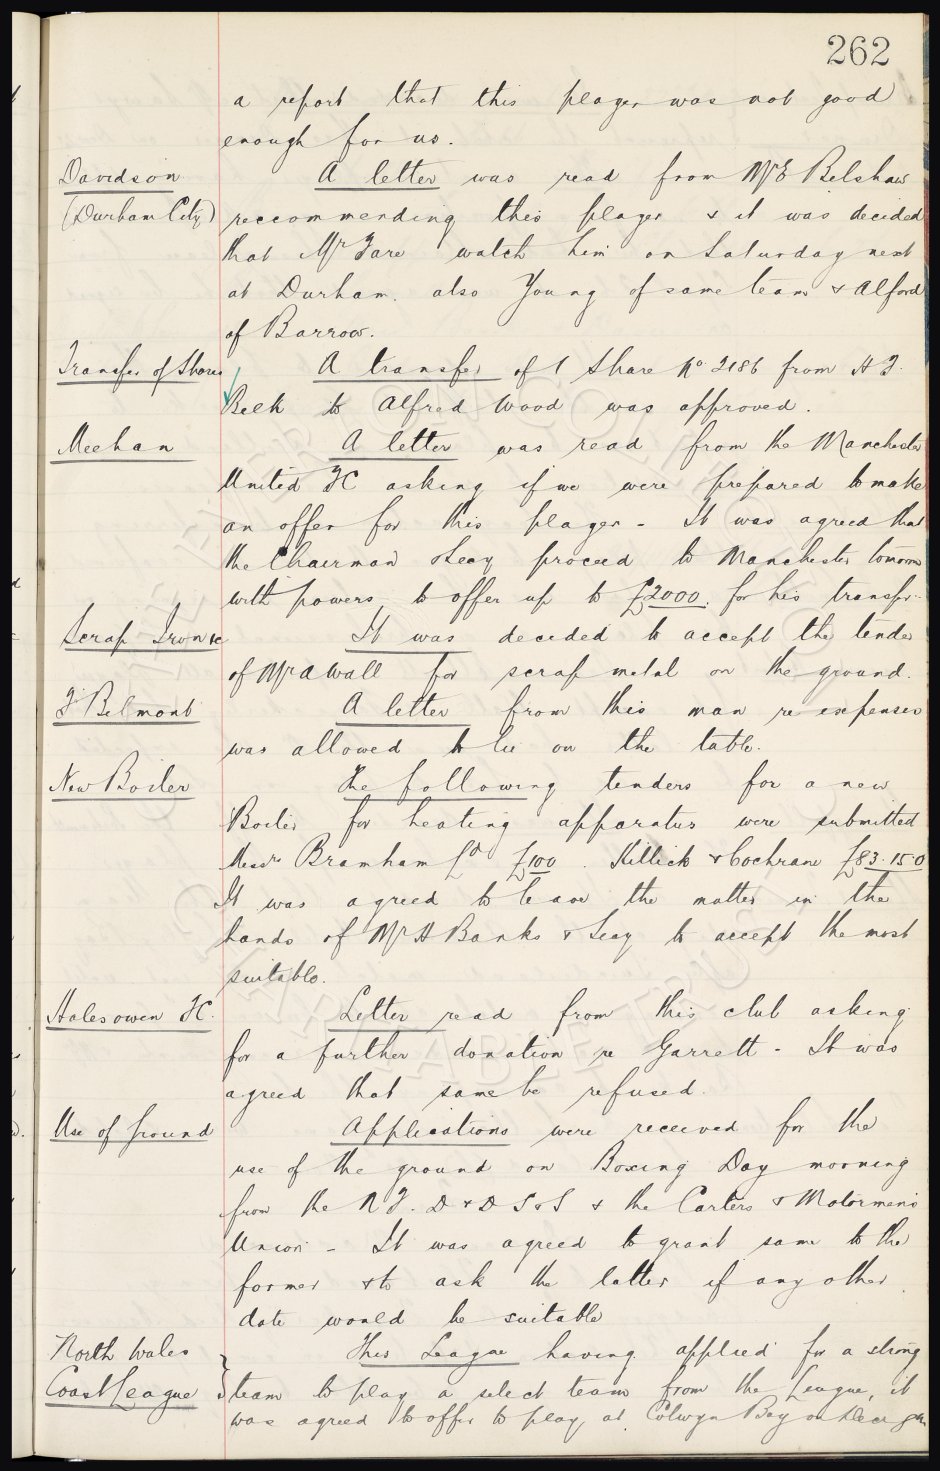 262
a report that this player was not good
enough for us.
Davidson
(Durham City)
A letter was read from Mr E Belshaw
reccommending this player & it was decided
that Mr Fare watch him on Saturday next
at Durham. also Young of same team & Alford
of Barrow.
Transfer of Shares
A transfer of 1 Share No 2186 from H J.
Beek to Alfred Wood was approved.
Meehan
A letter was read from the Manchester
United FC asking if we were prepared to make
an offer for this player - It was agreed that
the Chairman & Secy proceed to Manchester tomorrow
with powers to offer up to £2000. for his transfer.
Scrap Iron &c
It was decided to accept the tender
of Mr A Wall for scrap metal on the ground.
J Belmont
A letter from this man re expenses
was allowed to lie on the table.
New Boiler
The following tenders for a new
Boiler for heating apparatus were submitted
Messrs Bramham Ld £100. Killick & Cochrane £83.15.0
It was agreed to leave the matter in the
hands of Mr H Banks & Secy to accept the most
suitable.
Halesowen FC.
Letter read from this club asking
for a further donation re Garrett - It was
agreed that same be refused.
Use of Ground
Applications were received for the
use of the ground on Boxing Day morning
from the N F. D & D S & S & the Carters & Motormens
Union - It was agreed to grant same to the
former & to ask the latter if any other
date would be suitable
North Wales
Coast League
This League having applied for a strong
team to play a select team from the League, it
was agreed to offer to play at Colwyn Bay on